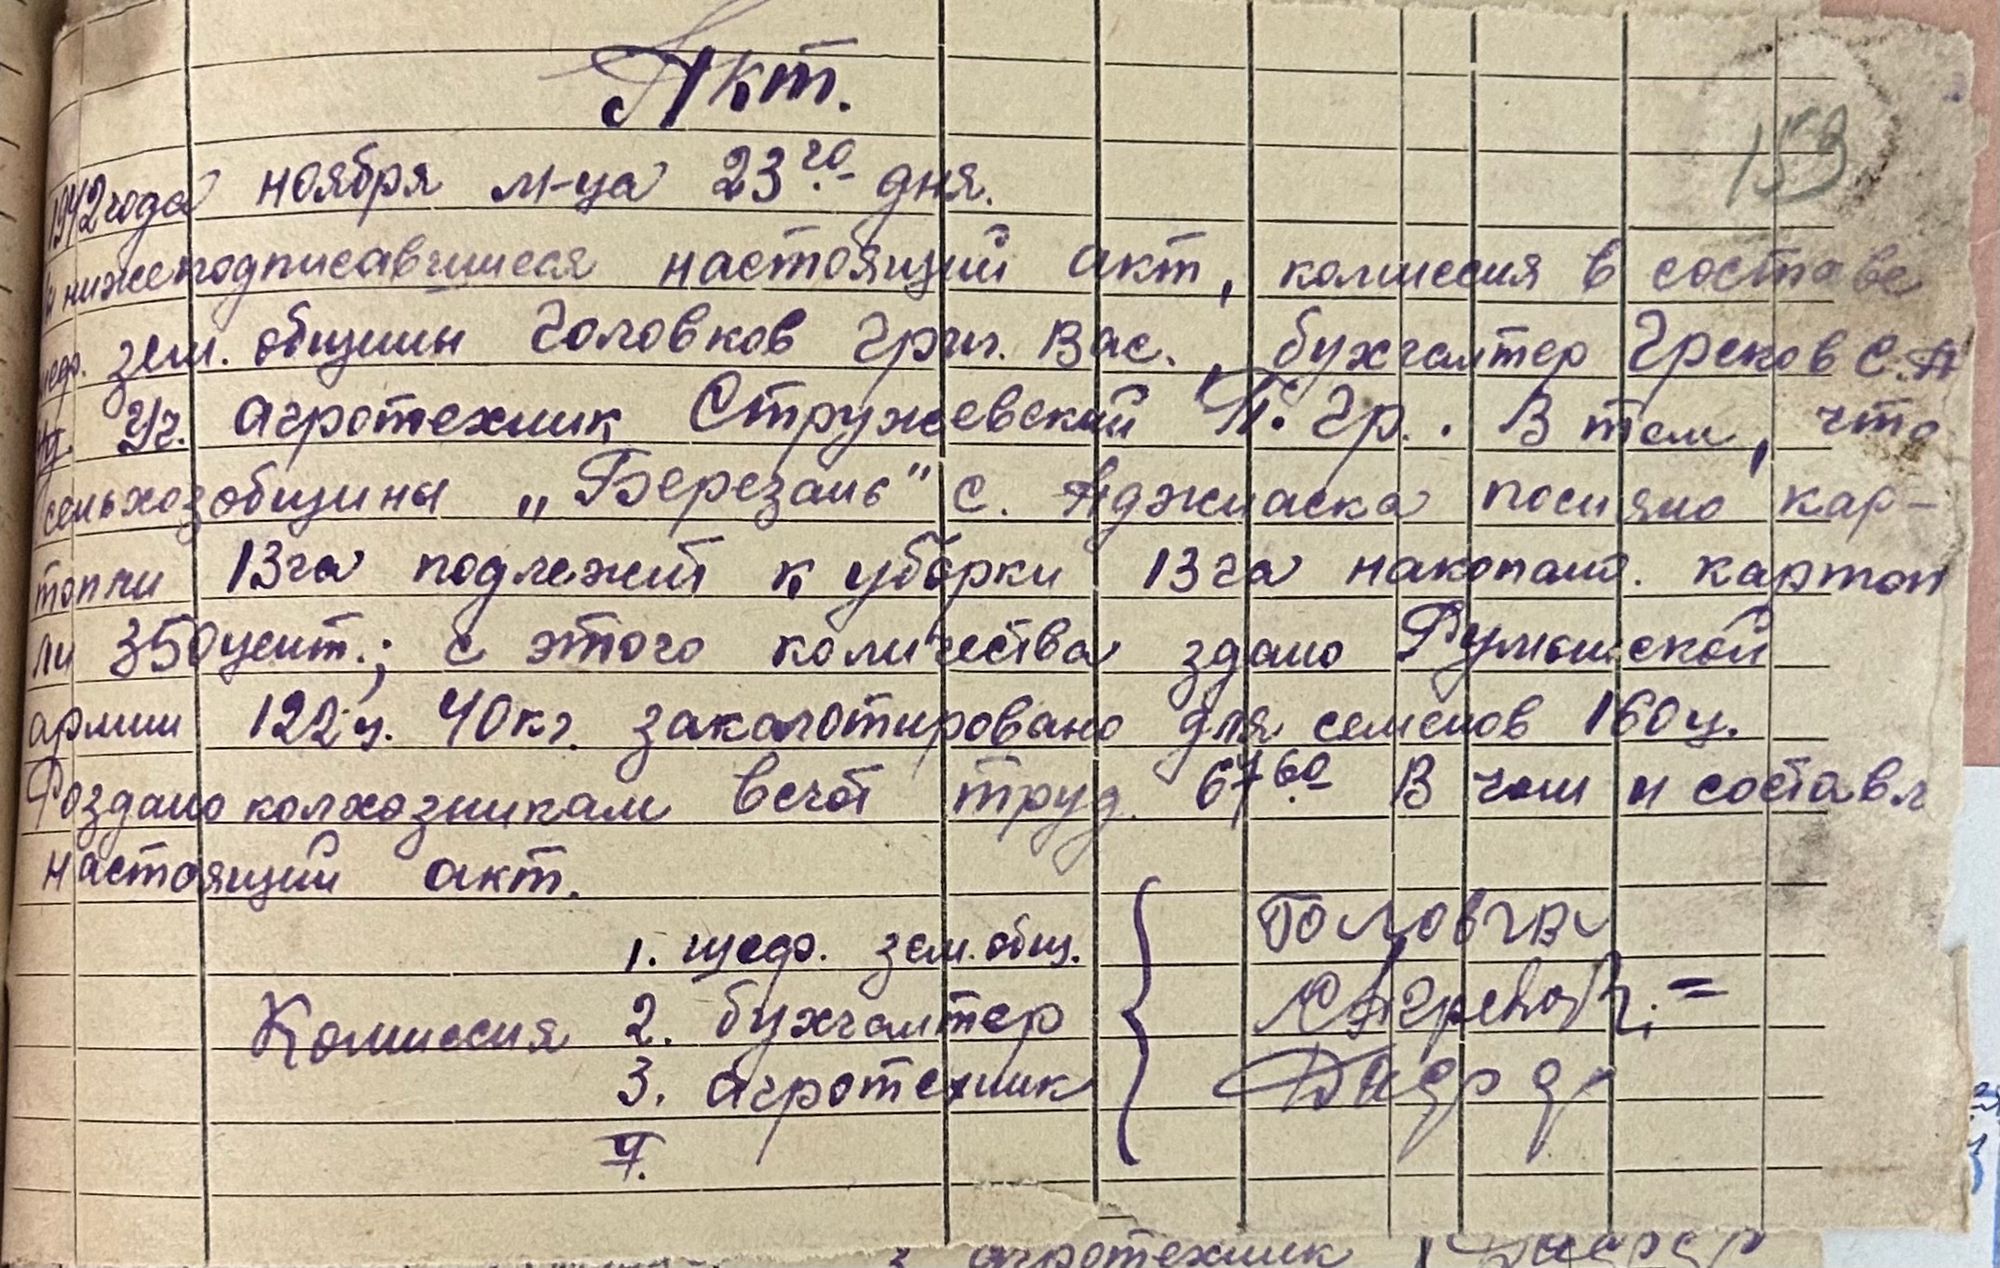 Акт.
153
1942 года ноября м-ца 23го дня.
нижеподписавшиеся настоящий акт, комиссия в составе
шеф. зем. общины Головков Григ. Вас., бухгалтер Греков С.А
Уч. агротехник Стружевский П. Гр.. В том, что
сельхозобщины „Березань" с. Аджиаска посияно кар-
топли 13га подлежит к уборки 13га накопано. картоп
ли 350цент.; с этого количества здано Румынской
армии 122ц. 40кг. закагатировано для семенов 160ц.
Роздано колхозникам всчот труд. 67 60 В чом и составл
настоящий акт.
1. шеф. зем. общ.
Комиссия 2. бухгалтер
3. агротехник
4.
агротехник